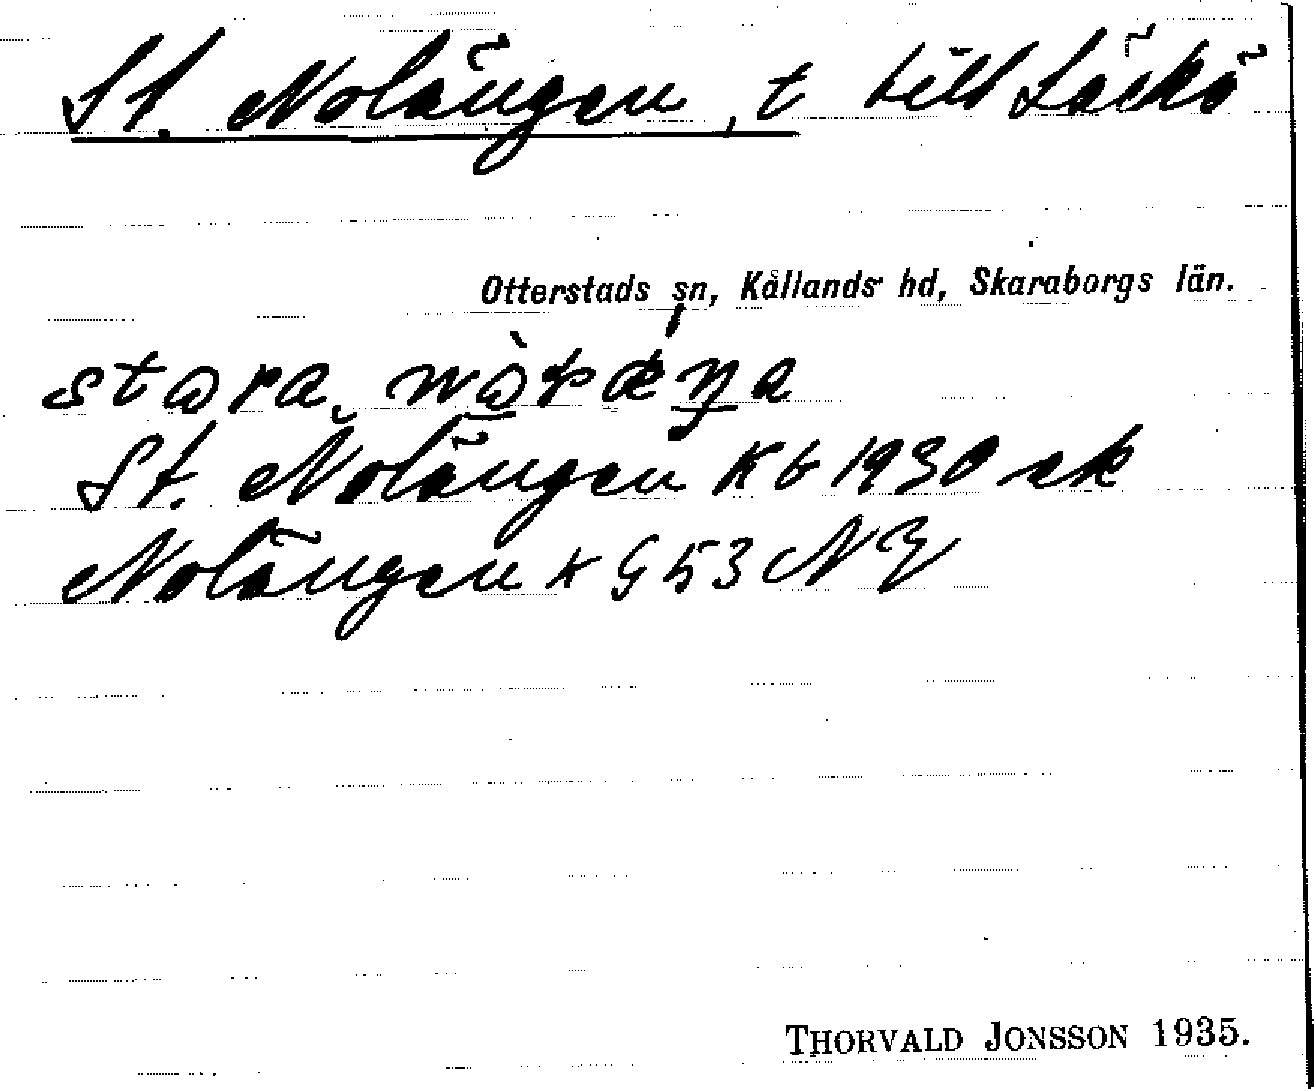 St. Nolängen, t till Läckö
Otterstads sn, Kållands hd, Skaraborgs län.
St. Nolängen Kb 1930 ek
Nolängen K G53 NÖ
THORVALD JONSSON 1935.